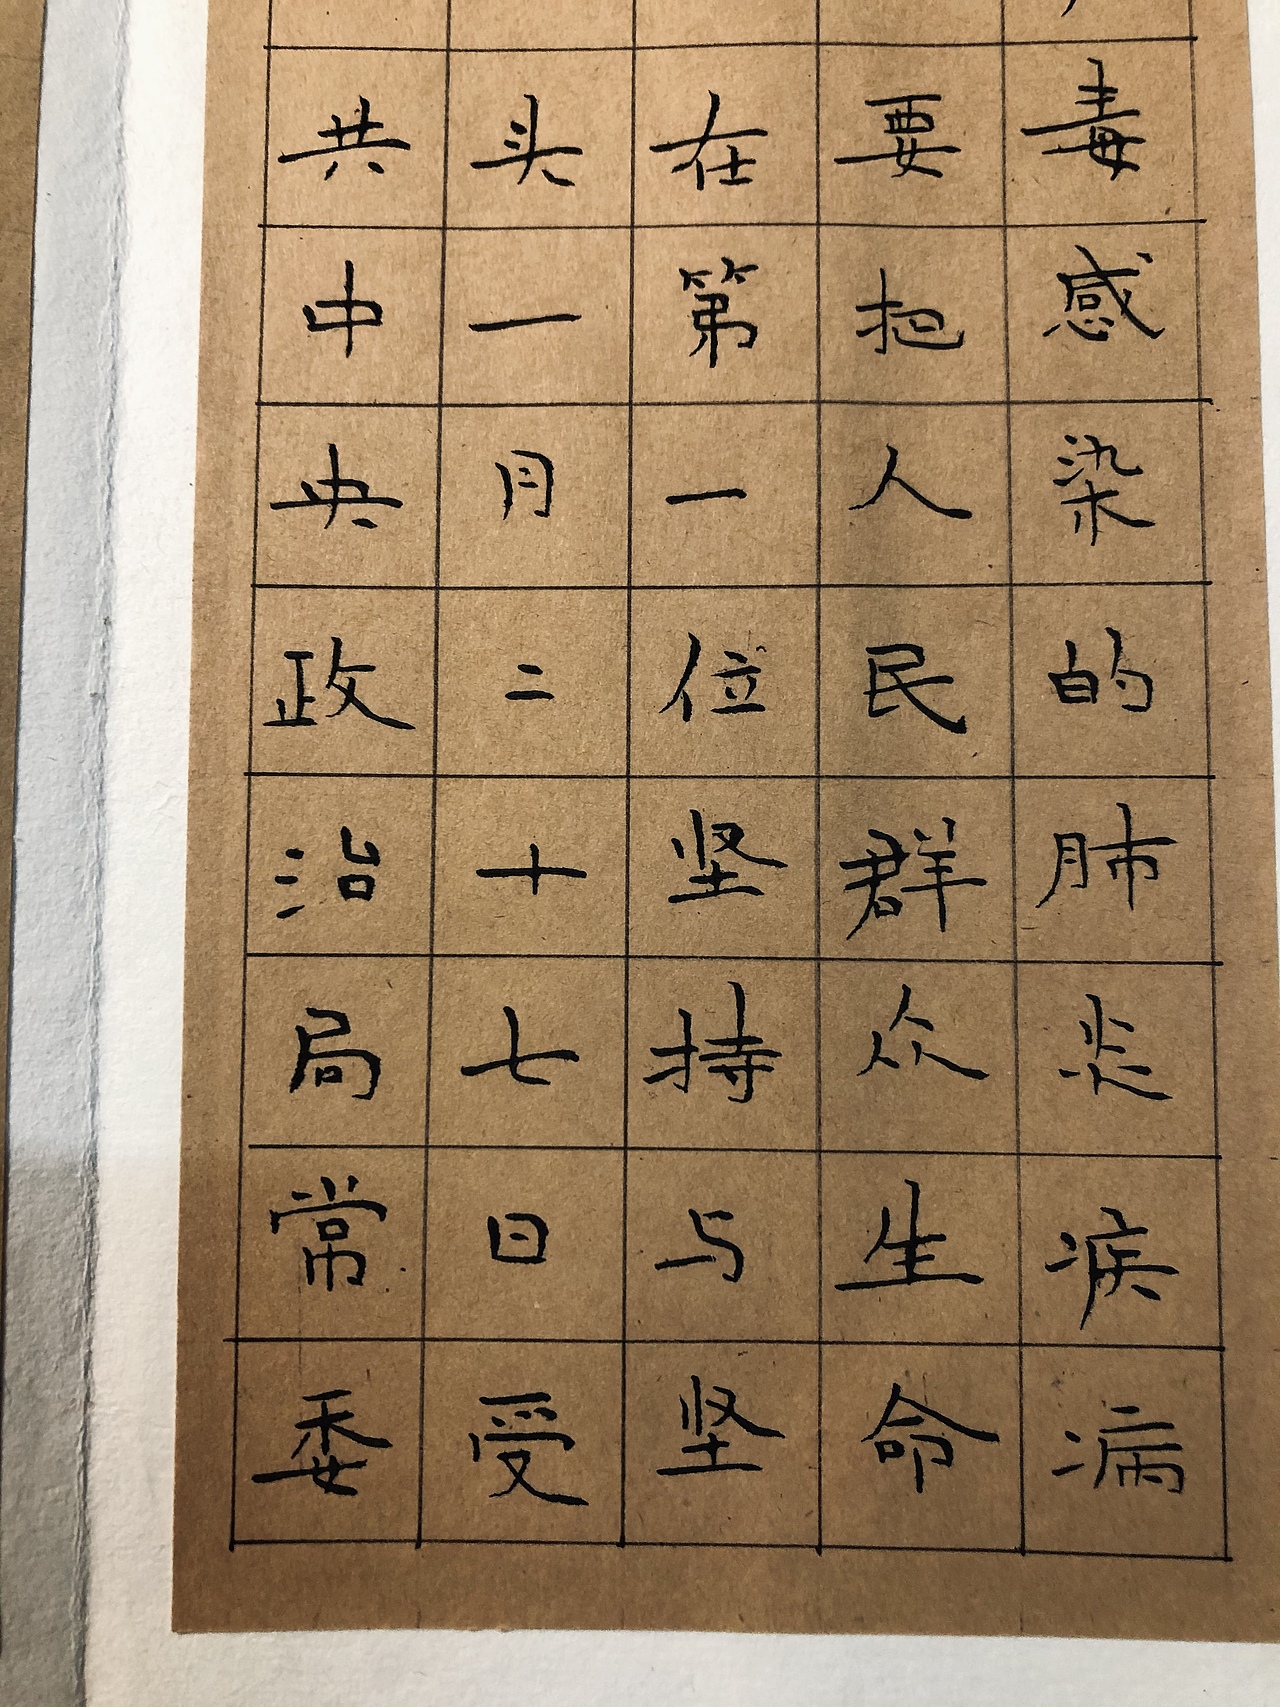 毒感染的肺炎疾病
要把人民群众生命
在第一位坚持与坚
头一月二十七日受
共中央政治局常委